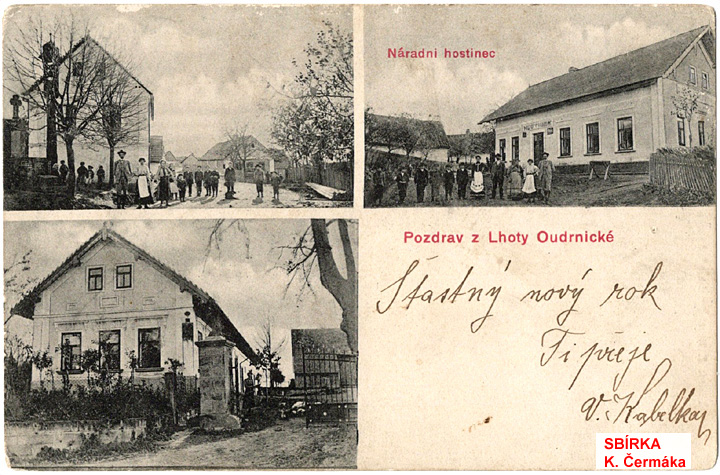 Národní hostinec
Pozdrav z Lhoty Oudrnické
Šťastný nový rok
Ti přeje
V. Kabelka
SBÍRKA
K. Čermáka